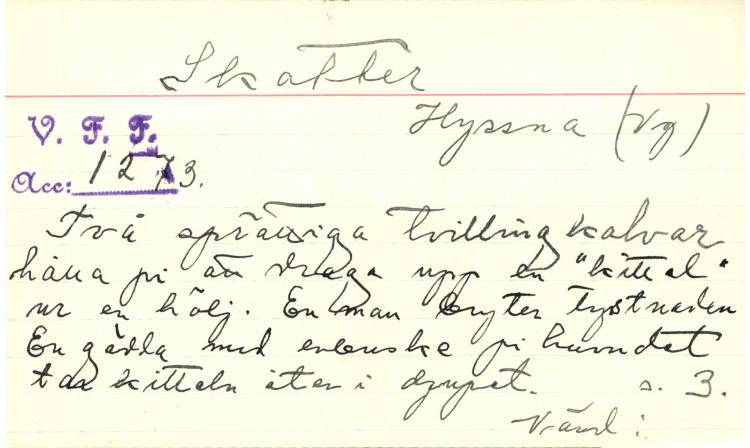 Skatter
Hyssna (Vg)
V. F. F.
Acc: 1273.
Två sprättiga tvillingkalvar
hålla på att draga upp en "kittel"
ur en hölj. En man bryter tystnaden
En gädda med enbuske på huvudet
tar kitteln åter i djupet. s. 3.
Vänd!